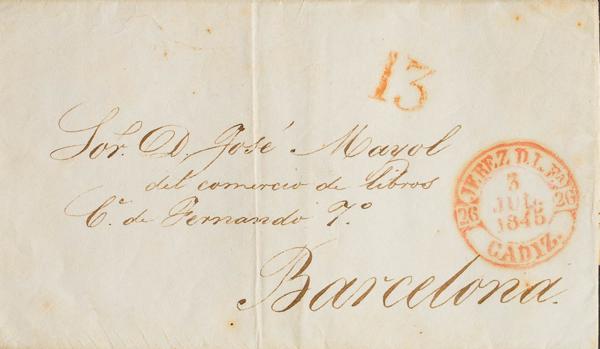 13
Sor. D. José Mayol
del comercio de libros
Ce. de Fernando 7.º
Barcelona.
JEREZ D.L. FA
26 26
3
JUL.
1845
CADIZ.